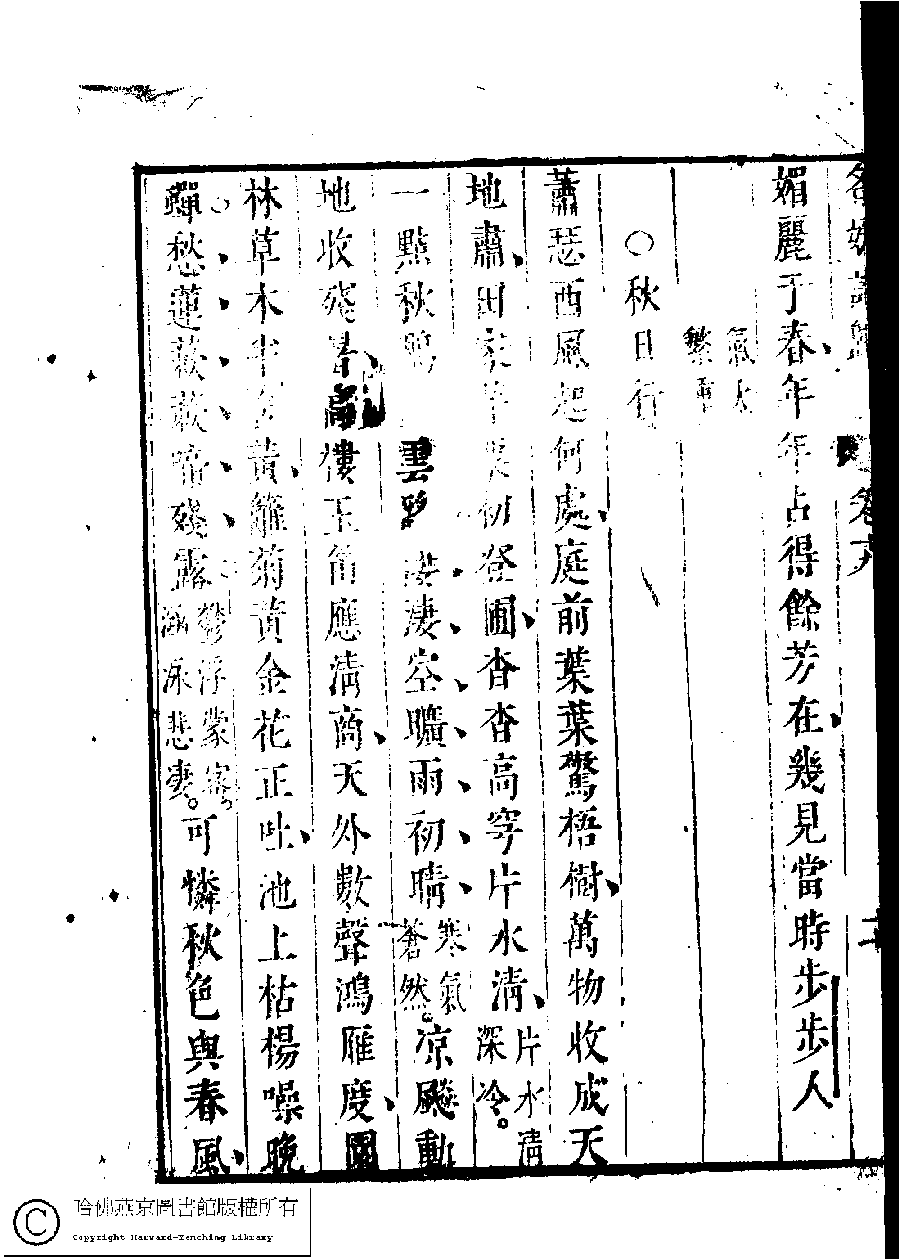 名媛詩歸 卷六
媚麗于春年年占得餘芳在幾見當時步步人
氣大
繁重
○秋日行
蕭瑟西風起何處庭前葉葉驚梧樹萬物收成天
地肅田家 初登圃杳杳高穹片水清片水清深冷
一點秋 雲 淒空曠雨初晴寒氣蒼然涼飈動
地收殘暑高樓玉笛應清商天外數聲鴻雁度園
林草木半 黃籬菊黃金花正吐池上枯楊噪晚
蟬愁蓮蔌蔌啼殘露鬱浮蒙密涵泳悲凄可憐秋色與春風
哈佛燕京圖書館版權所有
Copyright Harvard-Yenching Library